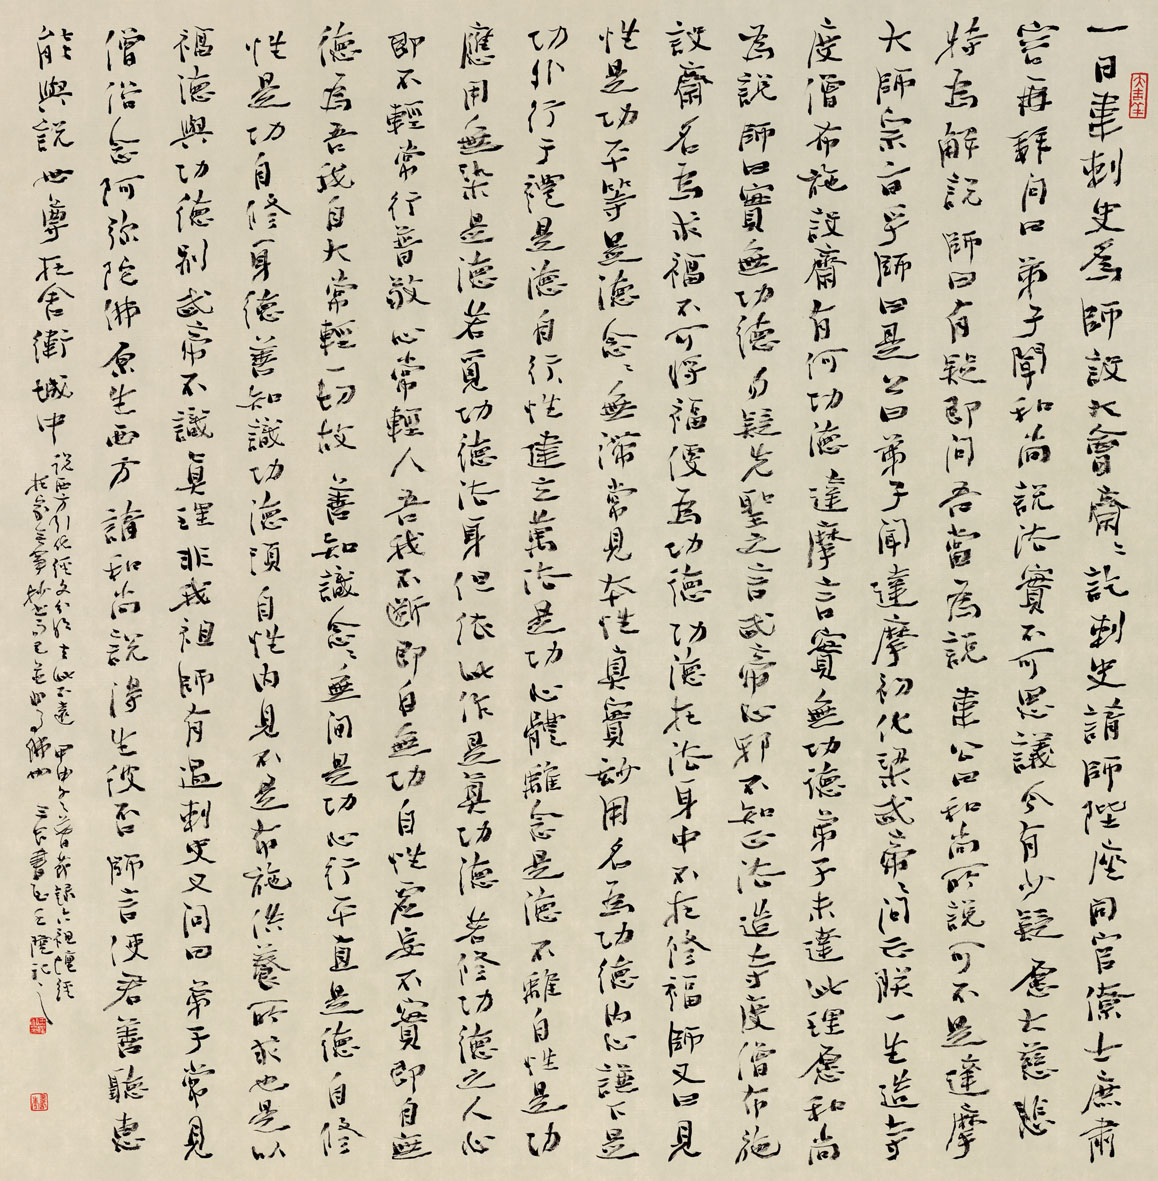 一日韋刺史為師設大會齋々訖刺史請師陞座同官僚士庶肅
容再拜問曰弟子聞和尚說法實不可思議今有少疑願大慈悲
特為解說師曰有疑即問吾當為說韋公曰和尚所說可不是達摩
大師宗旨乎師曰是公曰弟子聞達摩初化梁武帝々問云朕一生造寺
度僧布施設齋有何功德達摩言實無功德弟子未達此理願和尚
為說師曰實無功德勿疑先聖之言武帝心邪不知正法造寺度僧布施
設齋名為求福不可將福便為功德功德在法身中不在修福師又曰見
性是功平等是德念々無滯常見本性真實妙用名為功德內心謙下是
功外行于禮是德自行性建立萬法是功心體離念是德不離自性是功
應用無染是德若覓功德法身但依此作是真功德若修功德之人心
即不輕常行普敬心常輕人吾我不斷即自無功自性虛妄不實即自無
德為吾我自大常輕一切故善知識念々無間是功心行平直是德自修
性是功自修身德善知識功德須自性內見不是布施供養所求也是以
福德與功德別武帝不識真理非我祖師有過刺史又問曰弟子常見
僧俗念阿彌陀佛願生西方請和尚說得生彼否師言使君善聽惠
能與說世尊在舍衛城中
說西方引化經文分明去此不遠 甲申年之春節錄六祖壇經